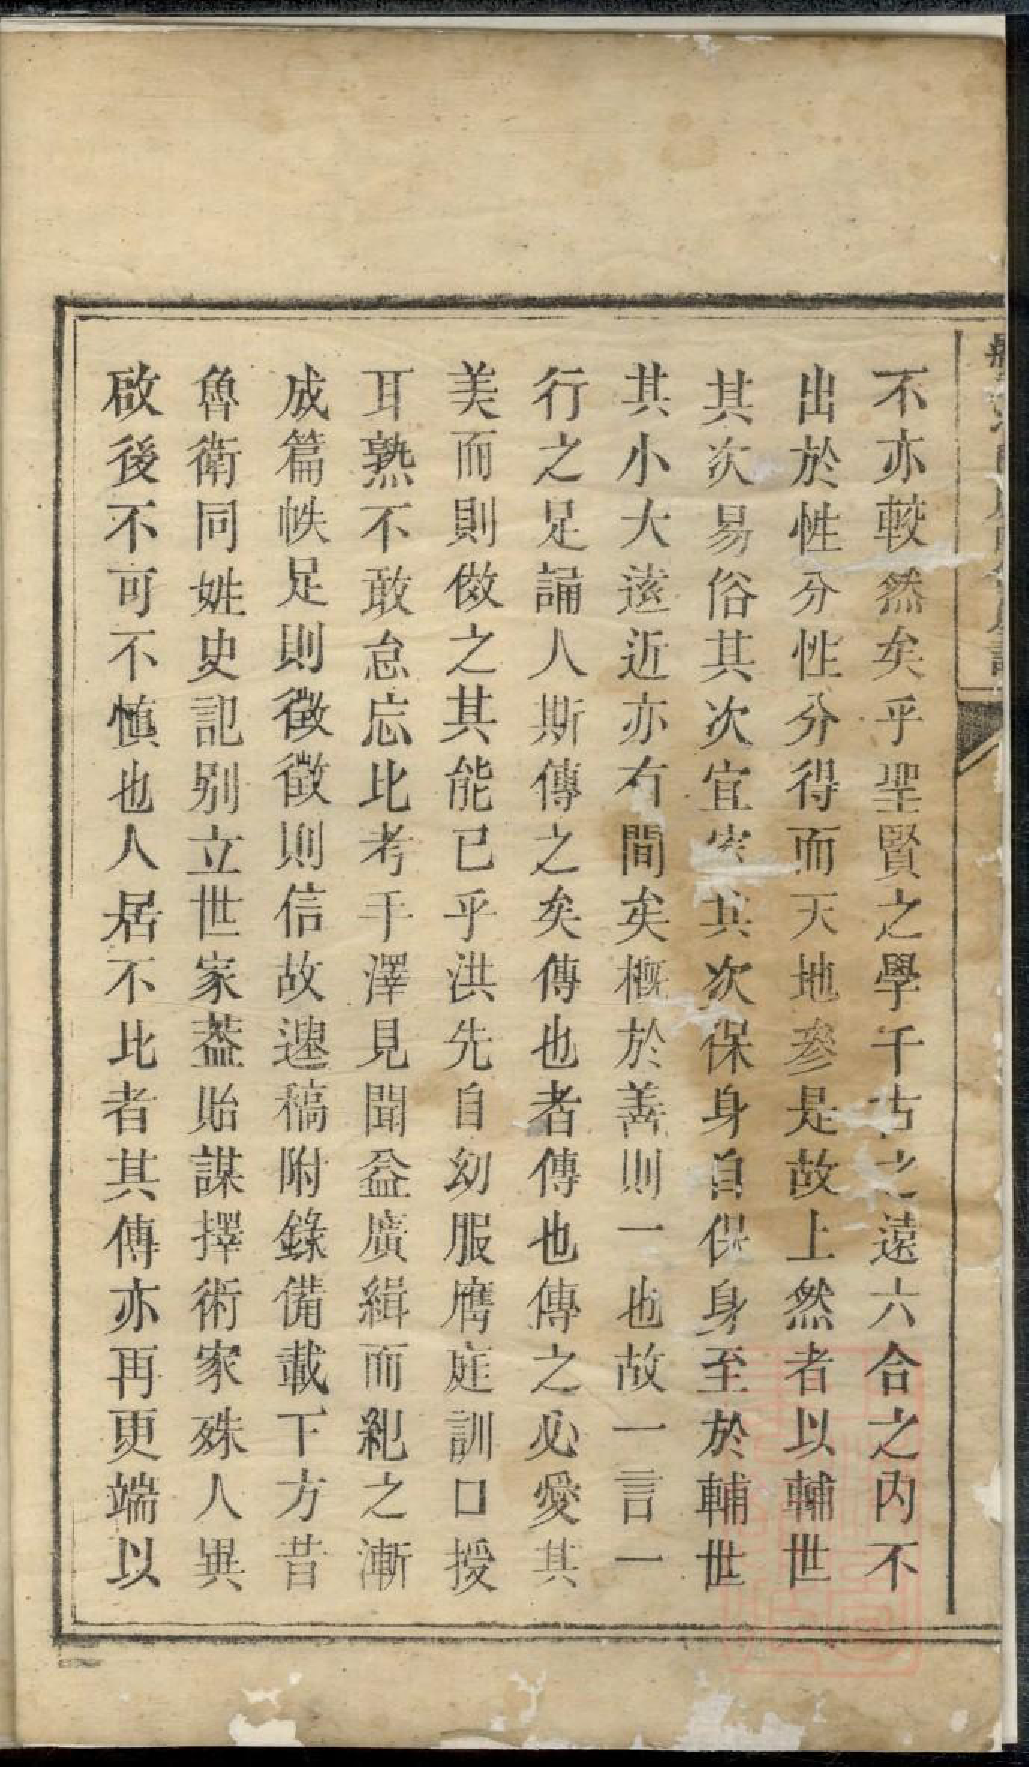 不亦較然矣乎聖賢之學千古之遠六合之內不
出於性分性分得而天地參是故上然者以輔世
其次易俗其次宜家其次保身自保身至於輔世
其小大遠近亦有間矣概於善則一也故一言一
行之足誦人斯傳之矣傳也者傳也傳之必愛其
美而則傚之其能已乎洪先自幼服膺庭訓口授
耳熟不敢怠忘比考手澤見聞益廣緝而紀之漸
成篇帙足則徵徵則信故遺稿附錄備載下方昔
魯衛同姓史記別立世家葢貽謀擇術家殊人異
啟後不可不慎也人居不比者其傳亦再更端以